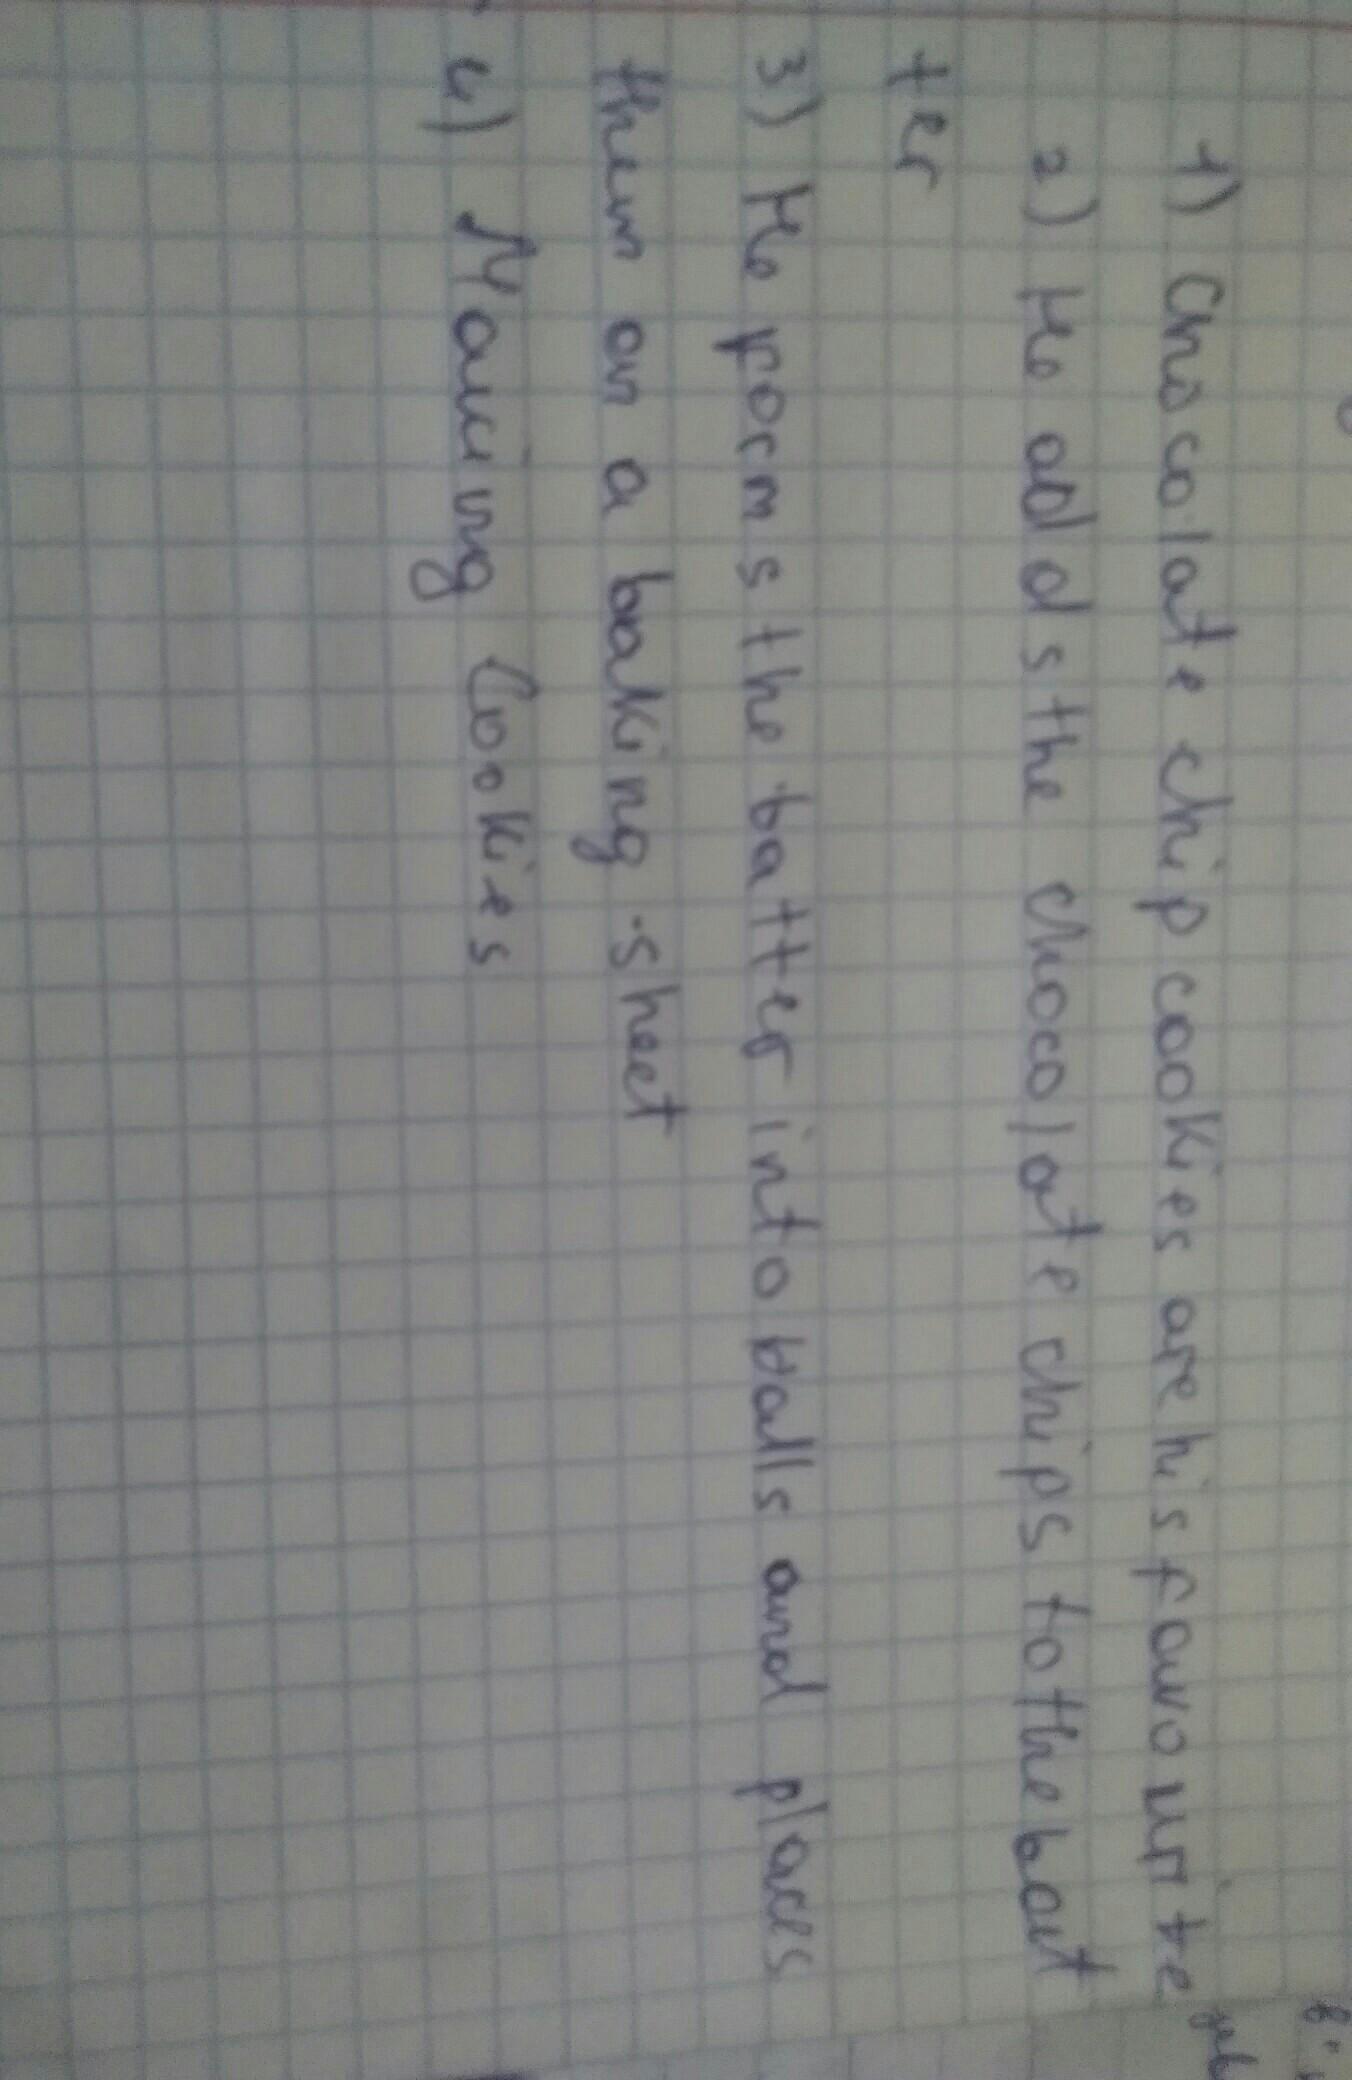 1) Chocolate chip cookies are his favourite
2) He adds the chocolate chips to the bat
ter
3) He forms the batter into balls and places
them on a baking sheet
4) Making Cookies